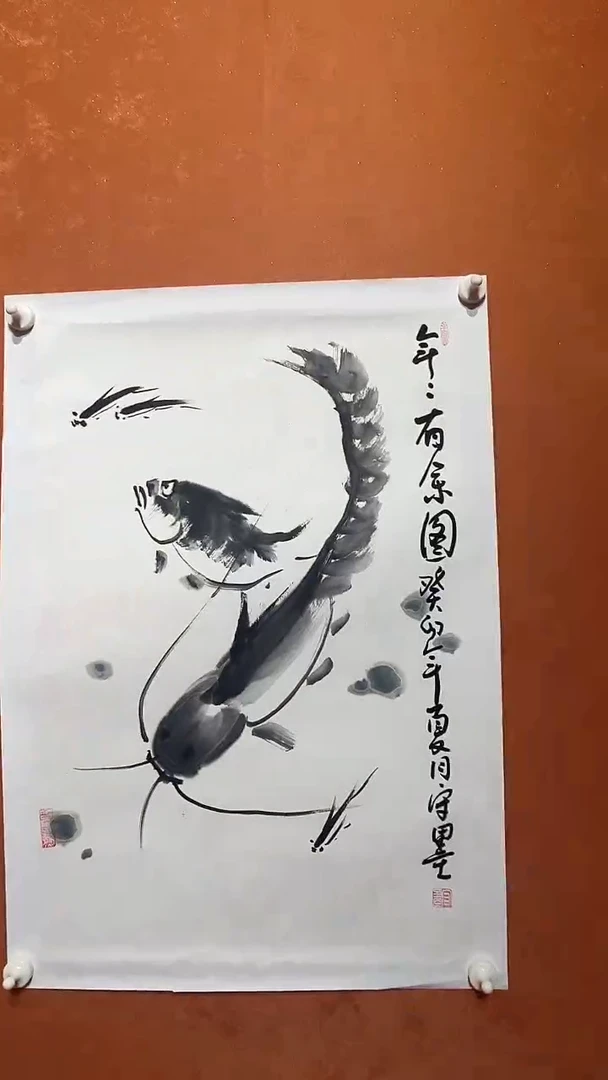 年〻有余图癸卯年夏月守墨